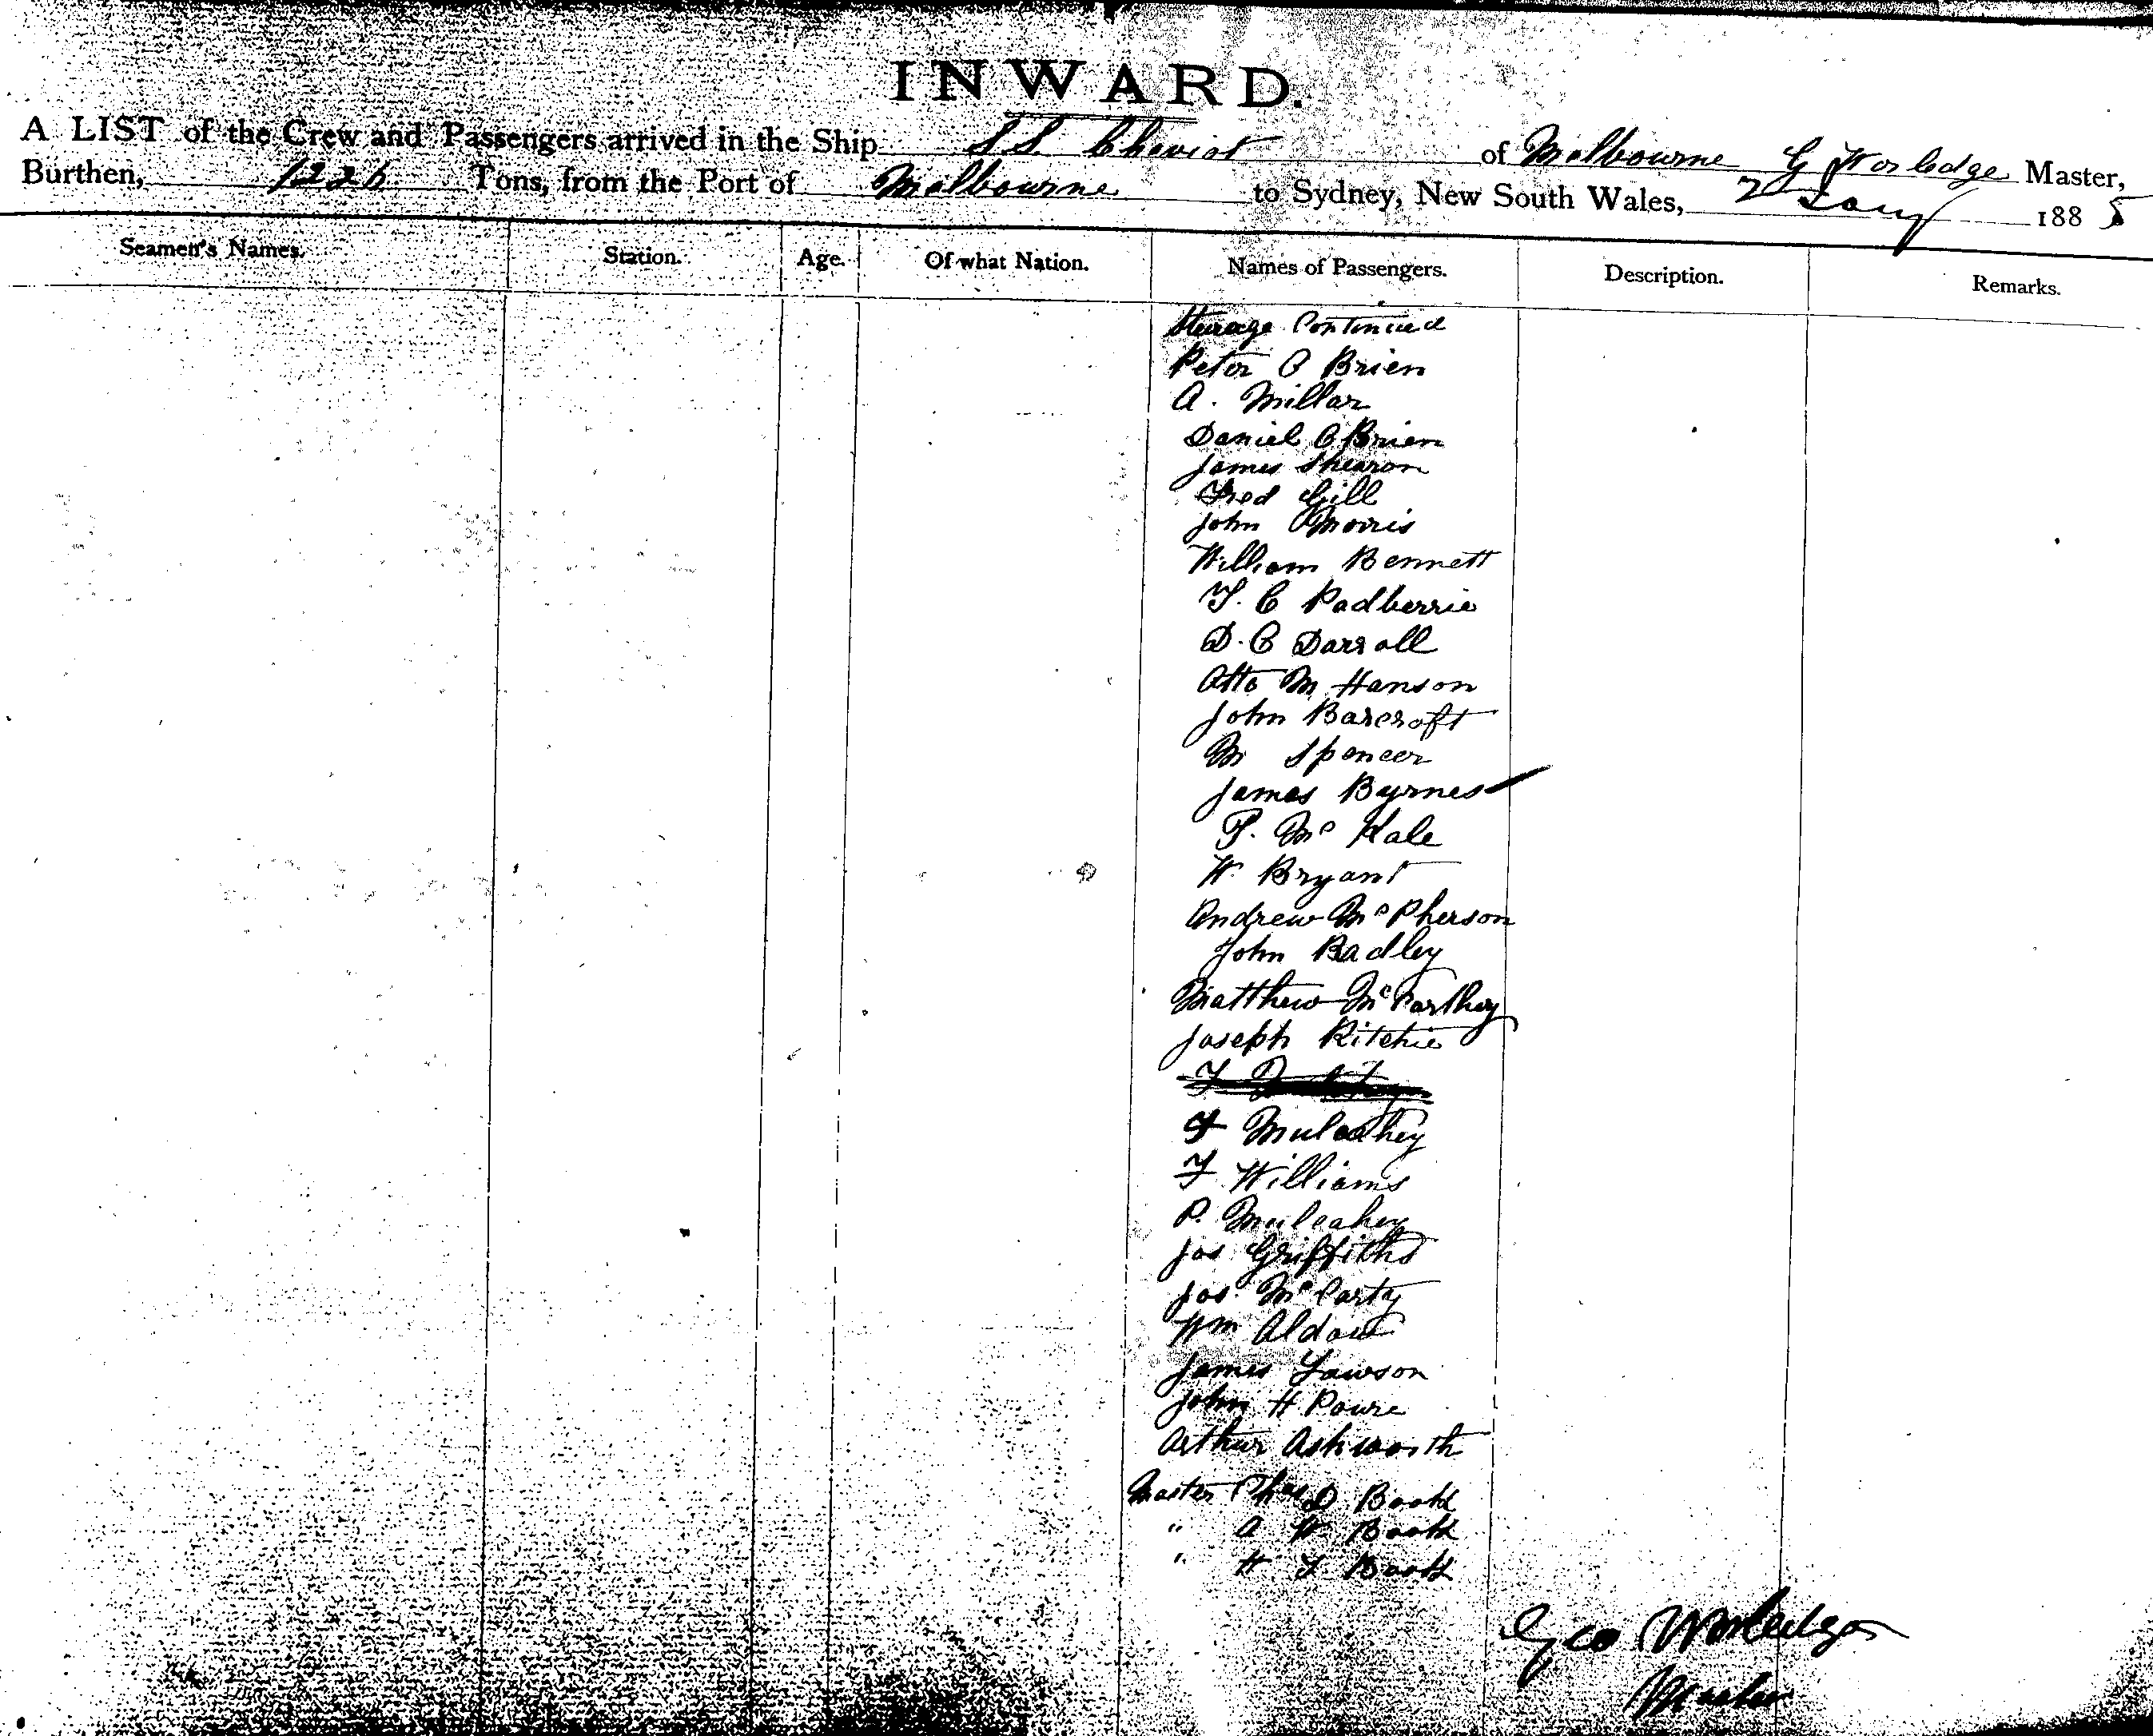 INWARD.
A LIST of the Crew and Passengers arrived in the Ship S.S. Cheviot of Melbourne G Worledge Master,
Burthen, 1226 Tons, from the Port of Melbourne to Sydney, New South Wales, 7 Jany 1885
Seamen's Names. Station. Age. Of what Nation. Names of Passengers. Description. Remarks.
Steerage Continued
Peter O Brien
A. Millar
Daniel O Brien
James Shearon
Fred Gill
John Morris
William Bennett
T. C Padberrie
D. C Darroll
Otto M Hanson
John Barcroft
M Spencer
James Byrnes
P. Mc Hale
W. Bryant
Andrew Mc Pherson
John Badley
Matthew Mc Carthey
Joseph Ritchie
Mulcahey
F Williams
P. Mulcahey
Jos Griffiths
Jos. Mc Carty
Wm
James Lawson
John H Powre
Arthur Ashworth
Master Chas D. Booth
" A W Booth
" H. F Booth
Geo Worledge
Master